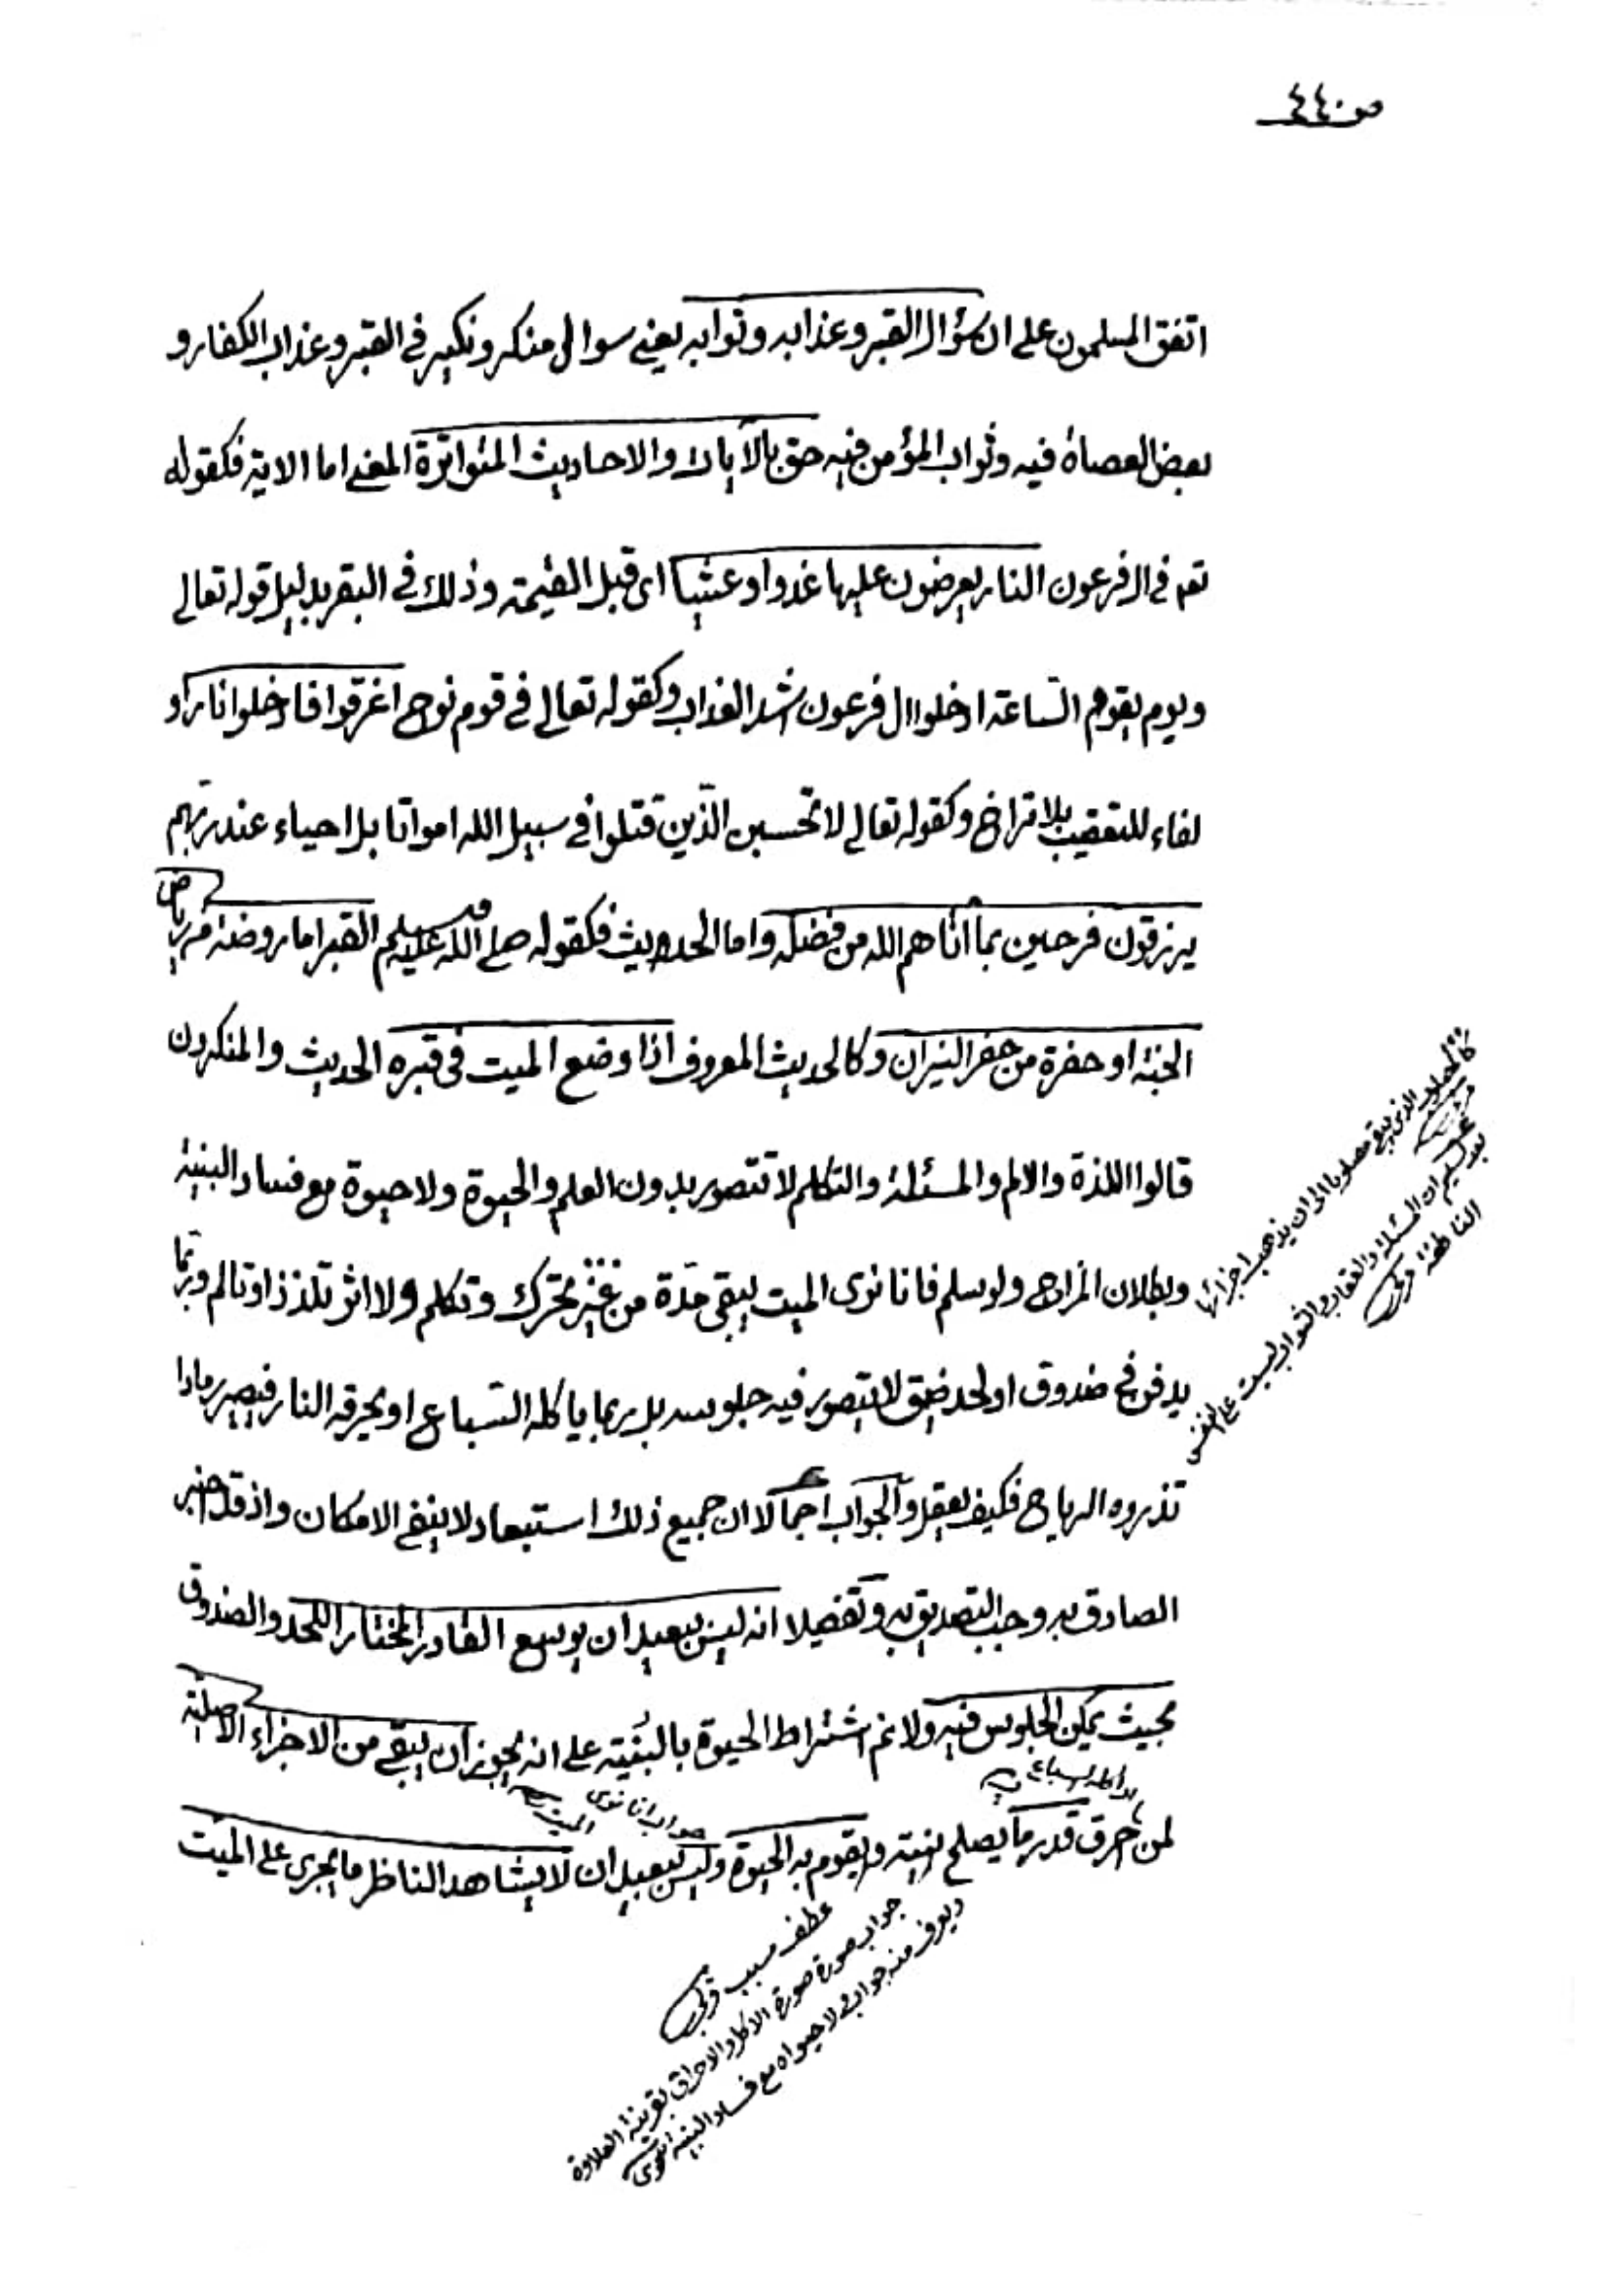 ص ٤٤٠
اتفق المسلمون على ان سؤال القبر وعذابه وثوابه يعنى سوال منكر ونكير فى القبر وعذاب الكفار و
بعض العصاة فيه وثواب المؤمن فيه حق بالآيات والاحاديث المتواترة المعنى اما الاية فكقوله
تعه فى ال فرعون النار يعرضون عليها غدوا وعشيا اى قبل القيمة وذلك فى القبر بدليل قوله تعالى
ويوم يقوم السّاعة ادخلوا ال فرعون اشد العذاب وكقوله تعالى فى قوم نوح اغرقوا فادخلوا نارا و
لفاء للتعقيب بلا تراخ وكقوله تعالى لا تحسبن الّذين قتلوا فى سبيل الله امواتا بل احياء عند ربّهم
يرزقون فرحين بما اتاهم الله من فضله واما الحديث فكقوله صلى الله عليه وسلم القبر اما روضة من رياض
الجنة او حفرة من حفر النيران وكالحديث المعروف اذا وضع الميت فى قبره الحديث والمنكرون
قالوا اللذة والالم والمسئلة والتكلم لا تتصور بدون العلم والحيوة ولا حيوة مع فساد البنية
وبطلان المزاج ولو سلم فانا نرى الميت يبقى مدّة من غير تحرك وتكلم ولا اثر تلذذ او تالم وربّما
يدفن فى صندوق او لحد ضيق لا يتصور فيه جلوسه بل ربما ياكله السّباع او يحرقه النار فيصير رمادا
تذروه الرياح فكيف يعقل والجواب اجمالا ان جميع ذلك استبعاد لا ينفى الامكان واذ قد اخبر
الصادق به وجب التصديق به وتفصيلا انه ليس ببعيد ان يوسع القادر المختار اللحد والصندوق
بحيث يمكن الجلوس فيه ولا نم اشتراط الحيوة بالبنية على انه يجوز ان يبقى من الاجزاء الاصلية
لمن احرق قدر ما يصلح بنية ويقوم به الحيوة وليس ببعيد ان لا يشاهد الناظر ما يجرى على الميت
او اكله السباع
جواب انا نرى الميت
كالمصلوب الذى يبقى مصلوبا الى ان يذهب اجزائها
بعد تسليم ان المسئلة والعقاب والثواب ليست على النفس
الناطقة
عطف سبب
جواب صورة الاكل والاحراق بقرينة العلاوة
ويعرف منه جواب لا حيواة مع فساد البنية